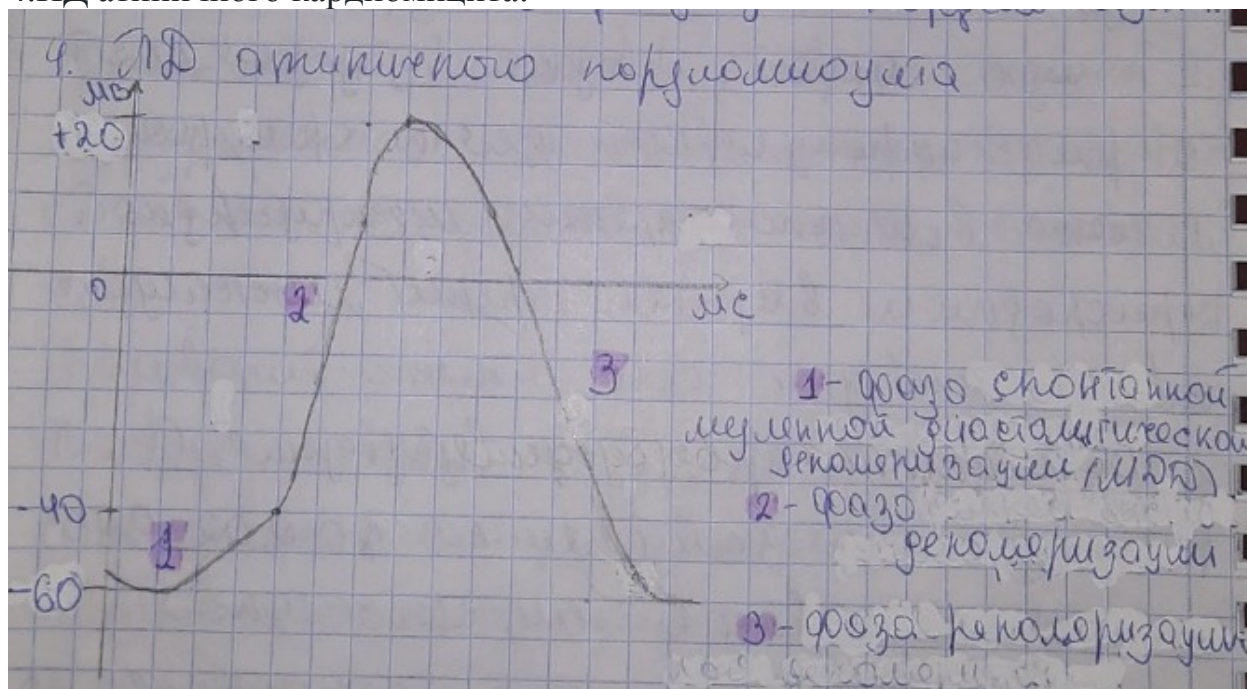 4. ПД атипичного кардиомиоцита
мВ
+20
0
2
мС
3
1 - фаза спонтанной
медленной диастолической
деполяризации (МДД)
-40
2 - фаза
1
деполяризации
-60
3 - фаза реполяризации